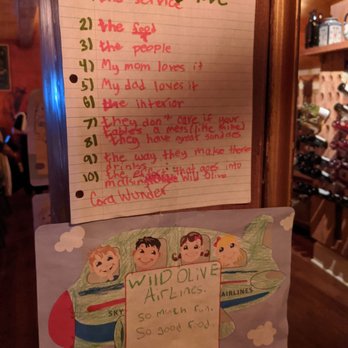 the service
2) the food
3) the people
4) My mom loves it
5) My dad loves it
6) the interior
7) they don't care if your
tables a mess (little kids)
8) they have great sundaes
9) the way they make there
drinks
10) the effort that goes into
making Wild Olive
Cora Wunder
WilD OLIVE
AirLines.
So much fun.
So good food.
SKY
AIRLINES